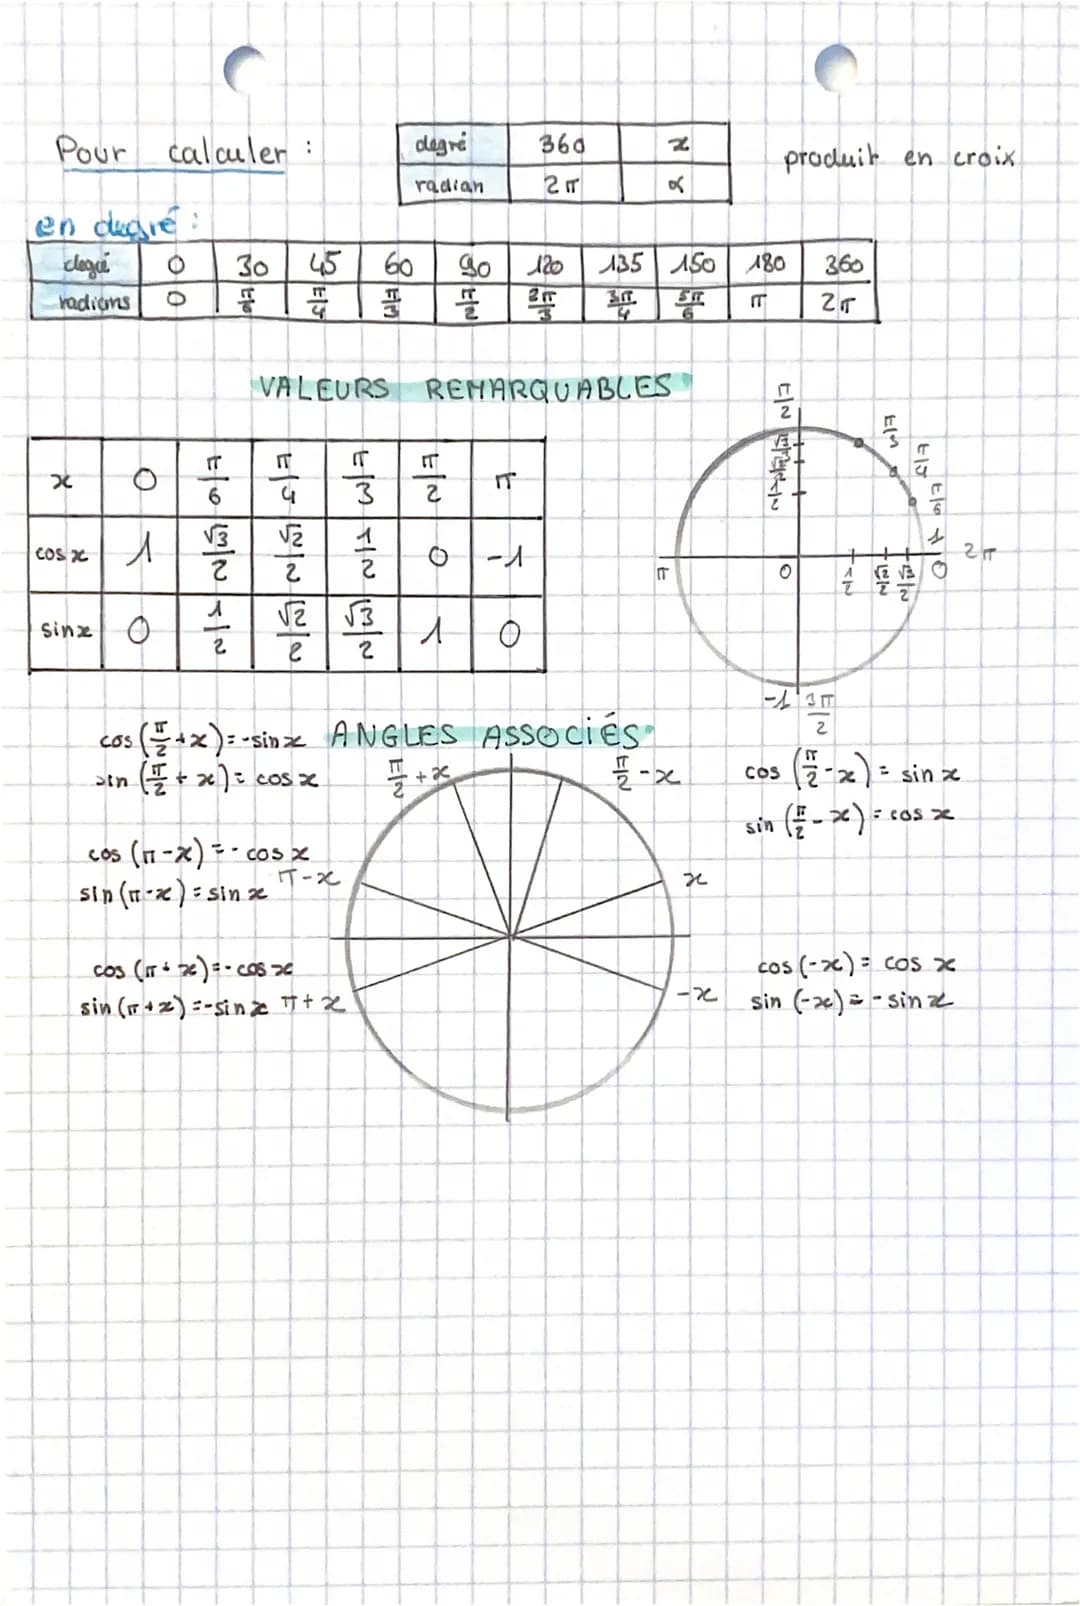 Pour calculer :
degré 360 x
radian 2π α
produit en croix
en degré :
degré 0 30 45 60 90 120 135 150 180 360
radians 0 π/6 π/4 π/3 π/2 2π/3 3π/4 5π/6 π 2π
VALEURS REMARQUABLES
x 0 π/6 π/4 π/3 π/2 π
cos x 1 √3/2 √2/2 1/2 0 -1
sin x 0 1/2 √2/2 √3/2 1 0
π/2
π/3
π/4
π/6
√3/2
√2/2
1/2
1
2π
π
0
1/2 √2/2 √3/2 0
-1 3π/2
ANGLES ASSOCIÉS
cos (π/2 + x) = -sin x
sin (π/2 + x) = cos x
π/2 + x
π/2 - x
cos (π/2 - x) = sin x
sin (π/2 - x) = cos x
cos (π - x) = - cos x
sin (π - x) = sin x
π - x
x
cos (π + x) = - cos x
sin (π + x) = -sin x
π + x
-x
cos (-x) = cos x
sin (-x) = - sin x